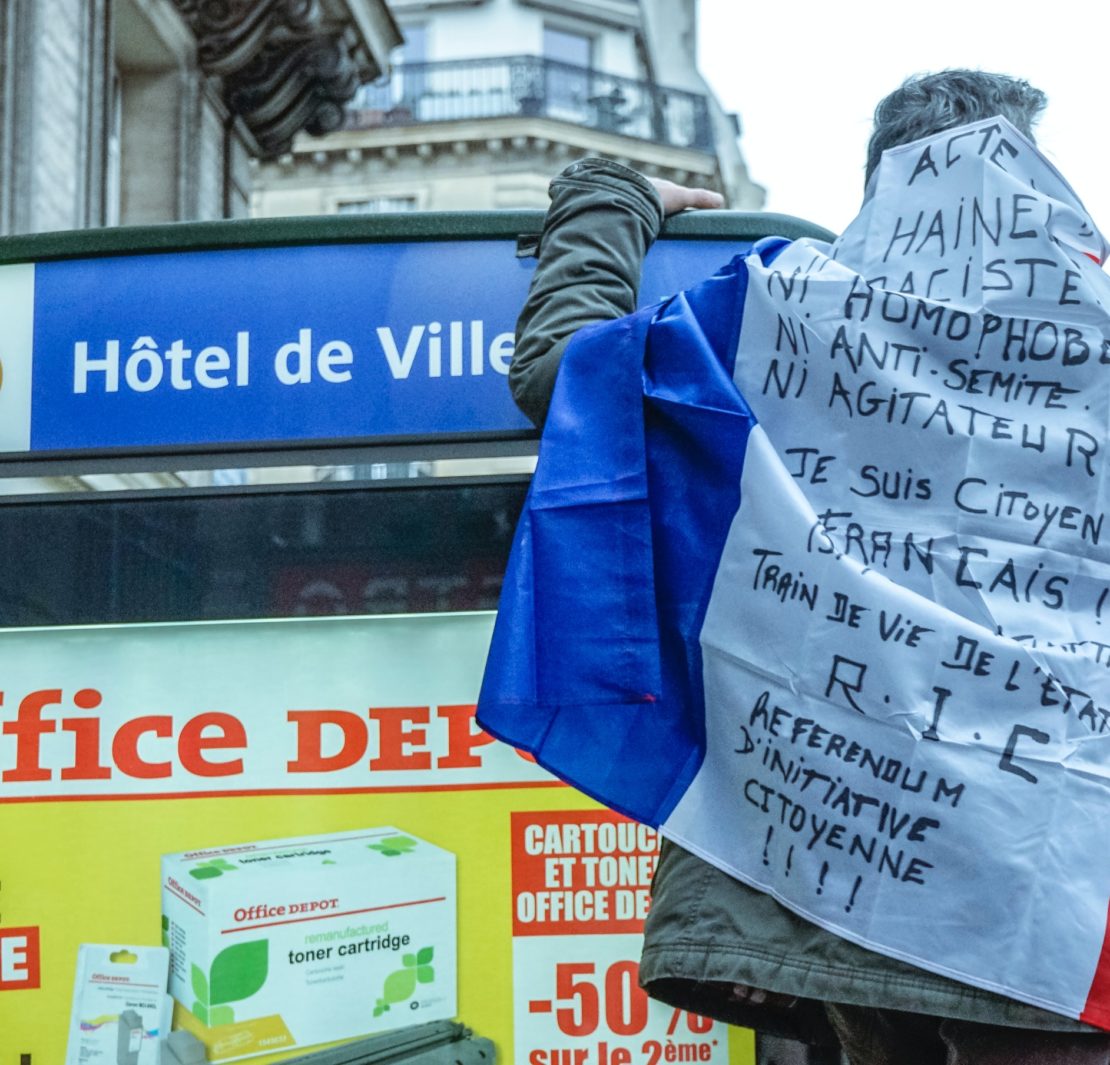 Hôtel de Ville
ffice DEPO
CARTOUC
ET TONE
OFFICE DE
-50%
sur le 2ème*
E
Office DEPOT
toner cartridge
Office DEPOT
Office DEPOT.
remanufactured
toner cartridge
Office DEPOT
ACTE
HAINEU
NI RACISTE.
HOMOPHOBE
NI ANTI-SEMITE.
NI AGITATEUR
JE SUIS CITOYEN
FRANCAIS !
TRAIN DE VIE DE L'ÉTAT
R.I.C
REFERENDUM
D'INITIATIVE
CITOYENNE
!!!!